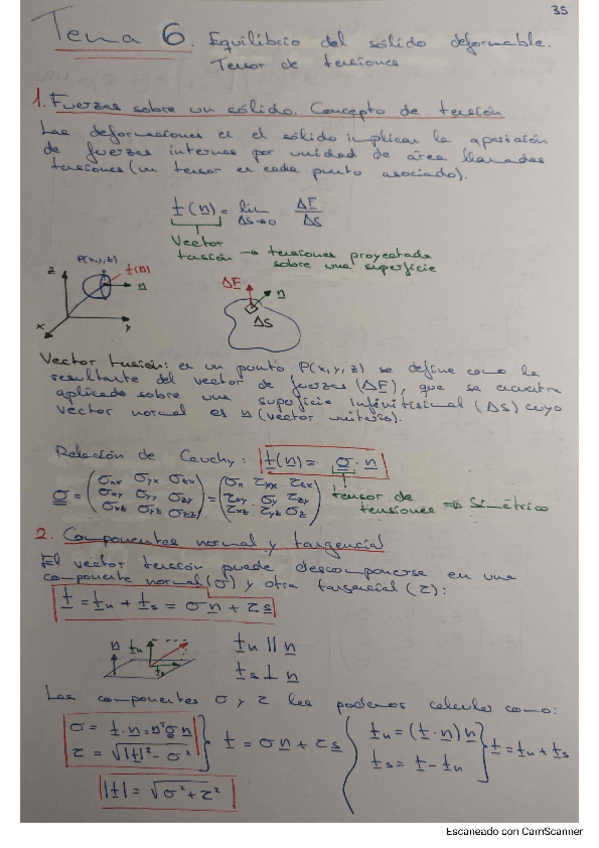 35
Tema 6. Equilibrio del sólido deformable.
Tensor de tensiones
1. Fuerzas sobre un sólido. Concepto de tensión
Las deformaciones en el sólido implican la aparición
de fuerzas internas por unidad de área llamadas
tensiones (un tensor en cada punto asociado).
t(n) = lim ΔF/ΔS
ΔS→0
Vector tensión → tensiones proyectadas
sobre una superficie
P(x,y,z) t(n) n
z x y
ΔF n ΔS
Vector tensión: en un punto P(x,y,z) se define como la
resultante del vector de fuerzas (ΔF), que se encuentra
aplicado sobre una superficie infinitisimal (ΔS) cuyo
vector normal es n (vector unitario).
Relación de Cauchy: t(n) = σ · n
σ = (σxx σyx σzx) = (σx τyx τzx)
(σxy σyy σzy) (τxy σy τzy)
(σxz σyz σzz) (τxz τyz σz)
tensor de tensiones ⇒ Simétrico
2. Componentes normal y tangencial
El vector tensión puede descomponerse en una
componente normal (σ) y otra tangencial (τ):
t = tn + ts = σn + τs
n tn ts
tn || n
ts ⊥ n
Las componentes σ y τ las podemos calcular como:
σ = t · n = nᵀσn
τ = √|t|² - σ²
t = σn + τs
tn = (t · n) n
ts = t - tn
t = tn + ts
|t| = √σ² + τ²
Escaneado con CamScanner